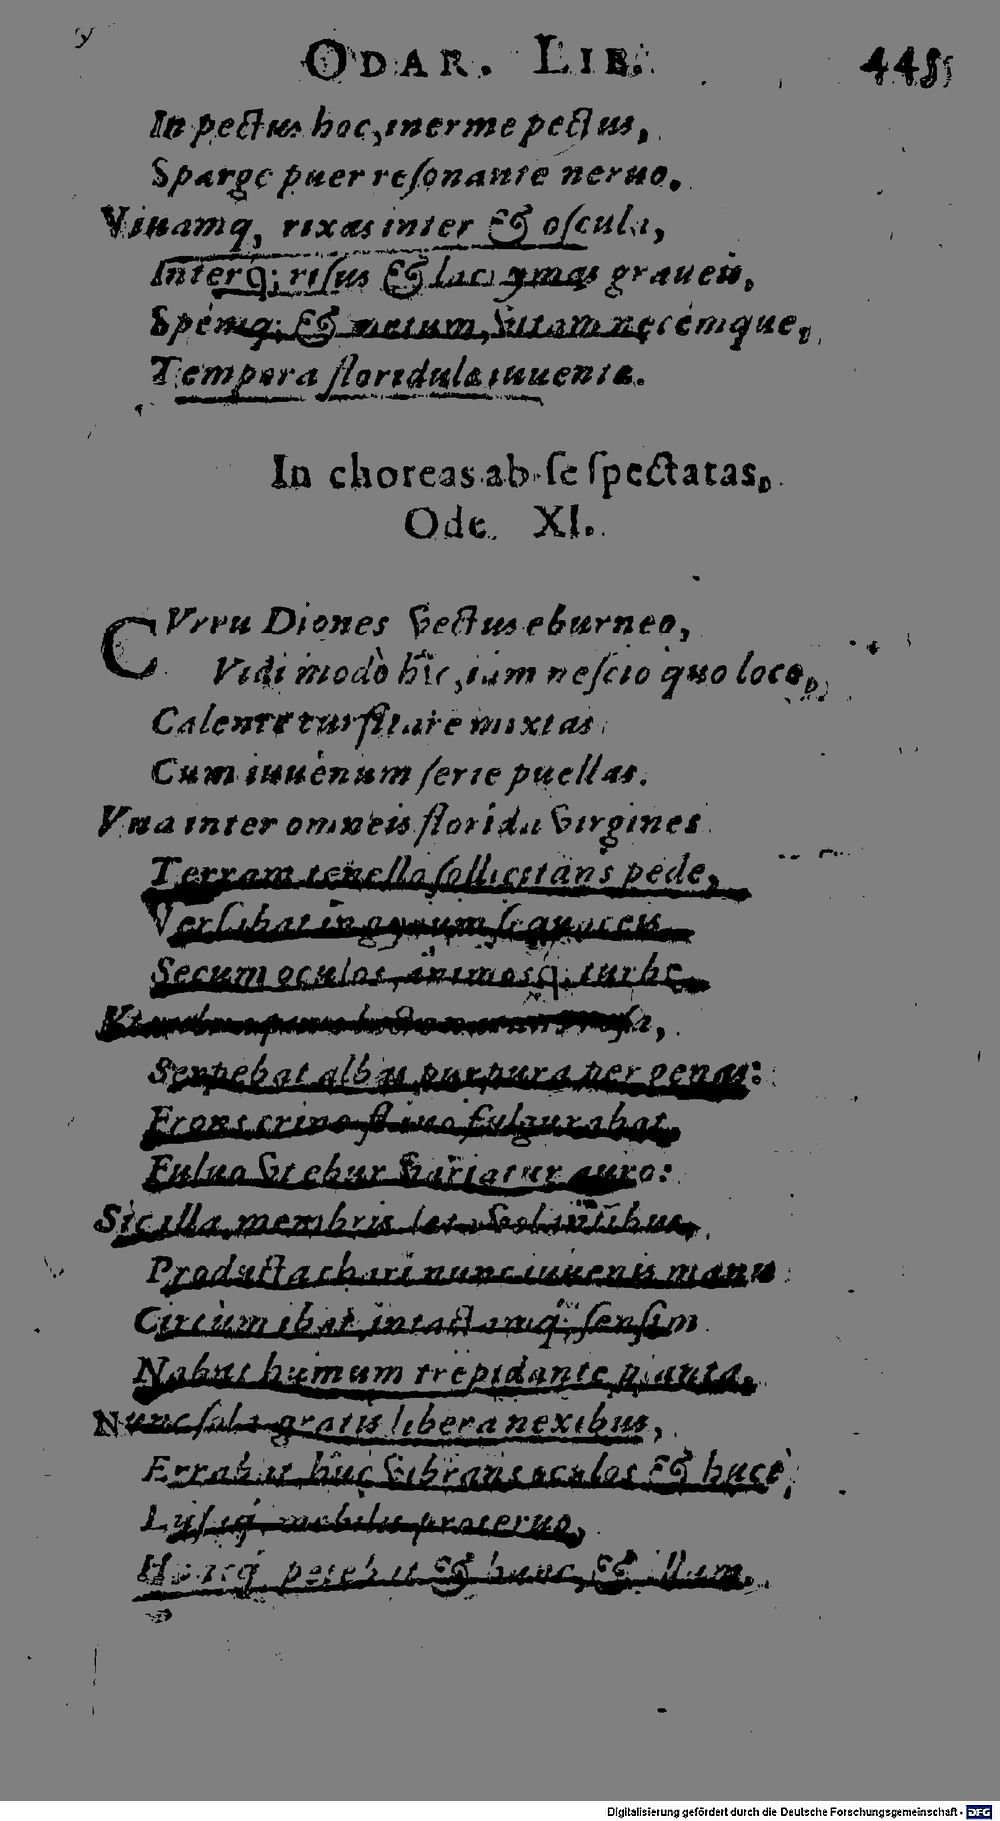 ODAR. LIB. 445
In pectus hoc, inerme pectus,
Sparge puer resonante neruo.
Viuamq, rixas inter & oscula,
Interq; risus & lacrymas graueis,
Spémq; & metum, vitam necémque,
Tempora floridulæ iuuentæ.
In choreas ab se spectatas,
Ode XI.
CVrru Diones vectus eburneo,
Vidi modò hîc, iam nescio quo loco,
Calente turb mixtas
Cum iuuenum serie puellas.
Vna inter omneis florida virgines
Terram tenella sollicitans pede,
Versabat in gyrum sequaceis
Secum oculos, animosq; turbæ.
rosa,
Serpebat albas purpura per genas:
Frons crine fl uo fulgurabat,
Fuluo vt ebur variatur auro:
Sic illa membris læta volantibus,
Producta chari nunc iuuenis manu
Circùm ibat, intactamq; sensim
Nabat humum trepidante planta,
Nunc sola gratis libera nexibus,
Errabat huc vibrans oculos & hucè,
Lusuq́ mobili proteruo,
Huncq́ petebat & hunc, & illum.
Digitalisierung gefördert durch die Deutsche Forschungsgemeinschaft - DFG